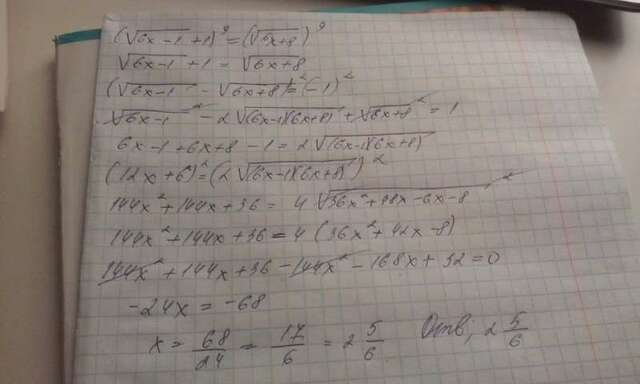 (√(6x-1) + 1)⁹ = (√(6x+8))⁹
√(6x-1) + 1 = √(6x+8)
(√(6x-1) - √(6x+8))² = (-1)²
√(6x-1)² - 2√((6x-1)(6x+8)) + √(6x+8)² = 1
6x-1+6x+8-1 = 2√((6x-1)(6x+8))
(12x+6)² = (2√((6x-1)(6x+8)))²
144x²+144x+36 = 4√(36x²+48x-6x-8)²
144x²+144x+36 = 4(36x²+42x-8)
144x²+144x+36-144x²-168x+32=0
-24x = -68
x = 68/24 = 17/6 = 2 5/6 Отв, 2 5/6